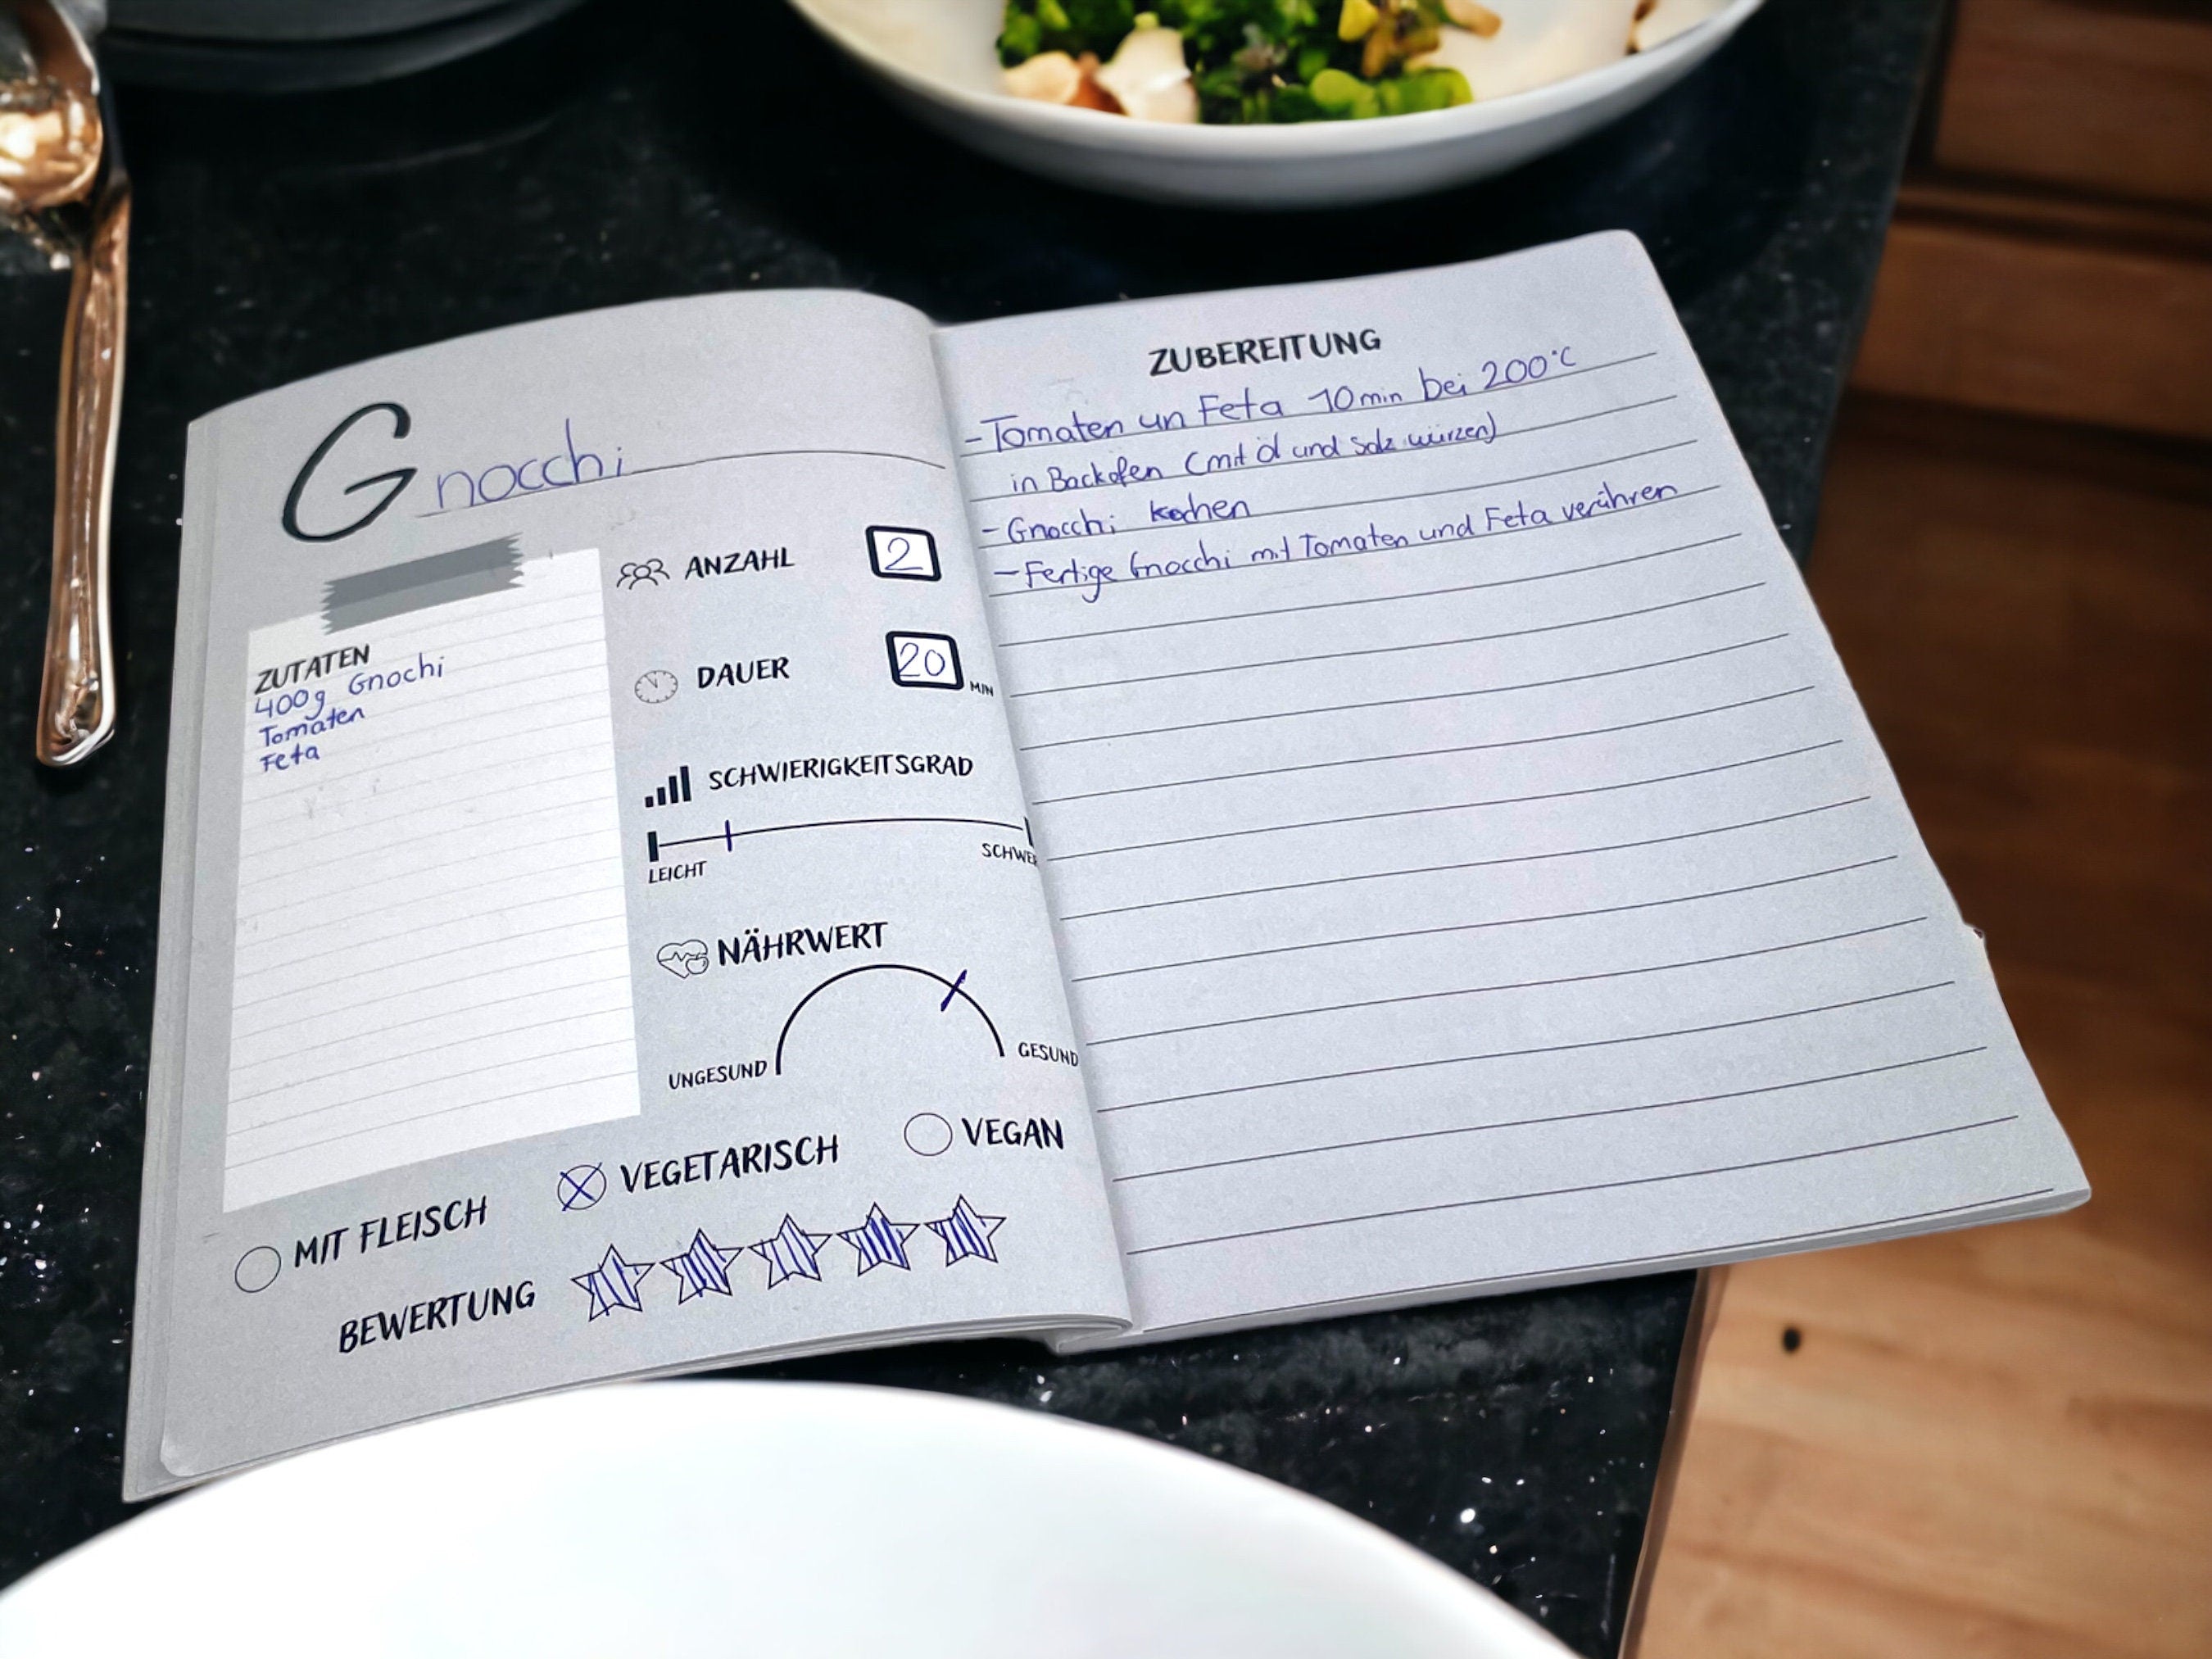 Gnocchi
ZUTATEN
400g Gnochi
Tomaten
Feta
ANZAHL 2
DAUER 20 MIN
SCHWIERIGKEITSGRAD
LEICHT SCHWER
NÄHRWERT
UNGESUND GESUND
MIT FLEISCH VEGETARISCH VEGAN
BEWERTUNG
ZUBEREITUNG
-Tomaten un Feta 10min bei 200°C
in Backofen (mit Öl und Salz würzen)
-Gnocchi kochen
-Fertige Gnocchi mit Tomaten und Feta verühren